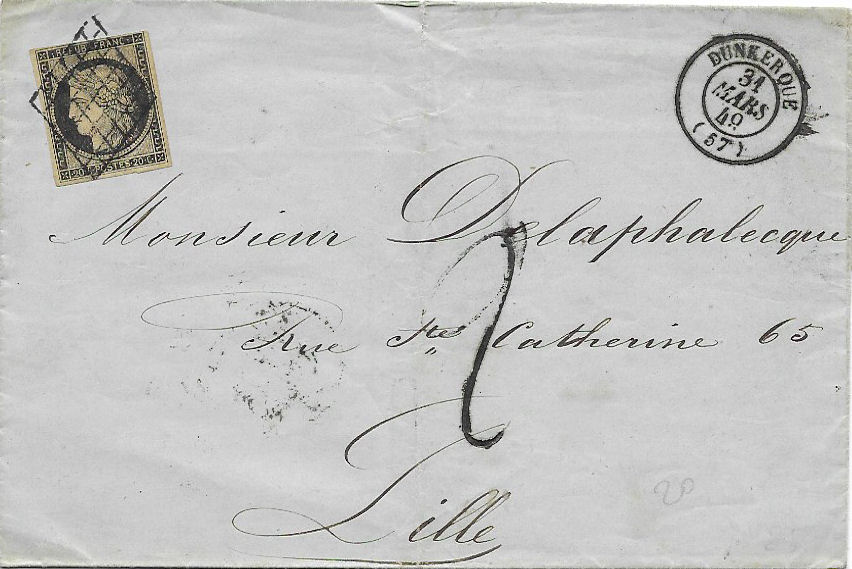 REPUB. FRANC.
20 POSTES 20 C
DUNKERQUE
31
MARS
49
(57)
Monsieur Delaphalecque
Rue Ste Catherine 65
2
Lille
20